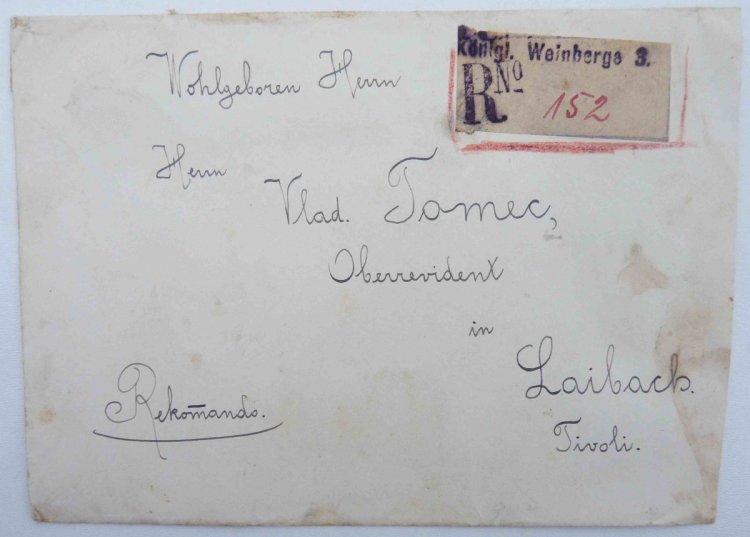 Königl. Weinberge 3.
R No 152
Wohlgeboren Herrn
Herrn
Vlad. Tomec,
Oberrevident
in
Laibach.
Tivoli.
Rekom̅ando.